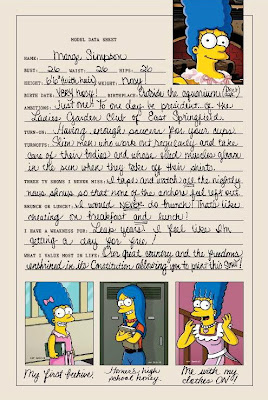 MODEL DATA SHEET
NAME: Marge Simpson
BUST: 26 WAIST: 26 HIPS: 26
HEIGHT: 8'6" (with hair) WEIGHT:
BIRTH DATE: Very nosy! BIRTHPLACE: Outside the aquarium
AMBITIONS: Just one! To one day be president of the
Ladies Garden Club of East Springfield.
TURN-ON: Having enough saucers for your cups!
TURNOFFS: men who work out regularly and take
care of their bodies and whose sleek muscles glow
in the sun when they take off their shirts.
THINGS TO KNOW I NEVER MISS: I tape and watch all the nightly
news shows so that none of the anchors feel left out.
BRUNCH OR LUNCH?: I would never do brunch! That's like
cheating on breakfast and lunch!
I HAVE A WEAKNESS FOR: Leap years! I feel like I'm
getting a day for free!
WHAT I VALUE MOST IN LIFE: Our great country and the freedoms
enshrined in its Constitution allowing you to print this
My first beehive.
Homer's high
school honey.
Me with my
clothes ON!